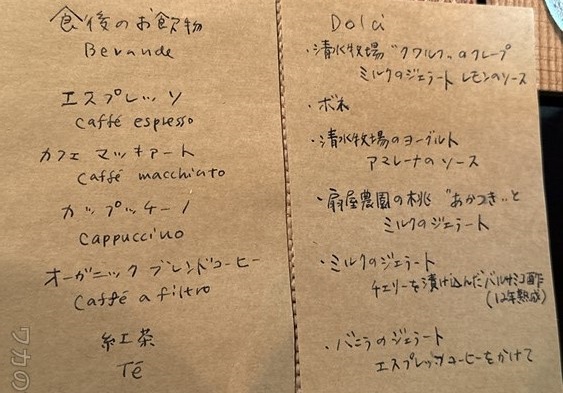 食後のお飲物
Bevande
エスプレッソ
caffé espresso
カフェ マッキアート
caffé macchiato
カップッチーノ
cappuccino
オーガニック ブレンドコーヒー
Caffé a filtro
紅茶
Té
Dolci
・清水牧場"クワルク"のクレープ
ミルクのジェラート レモンのソース
・ボネ
・清水牧場のヨーグルト
アマレーナのソース
・扇屋農園の桃 "あかつき"と
ミルクのジェラート
・ミルクのジェラート
チェリーを漬け込んだバルサミコ酢
(12年熟成)
・バニラのジェラート
エスプレッソコーヒーをかけて
ワカの